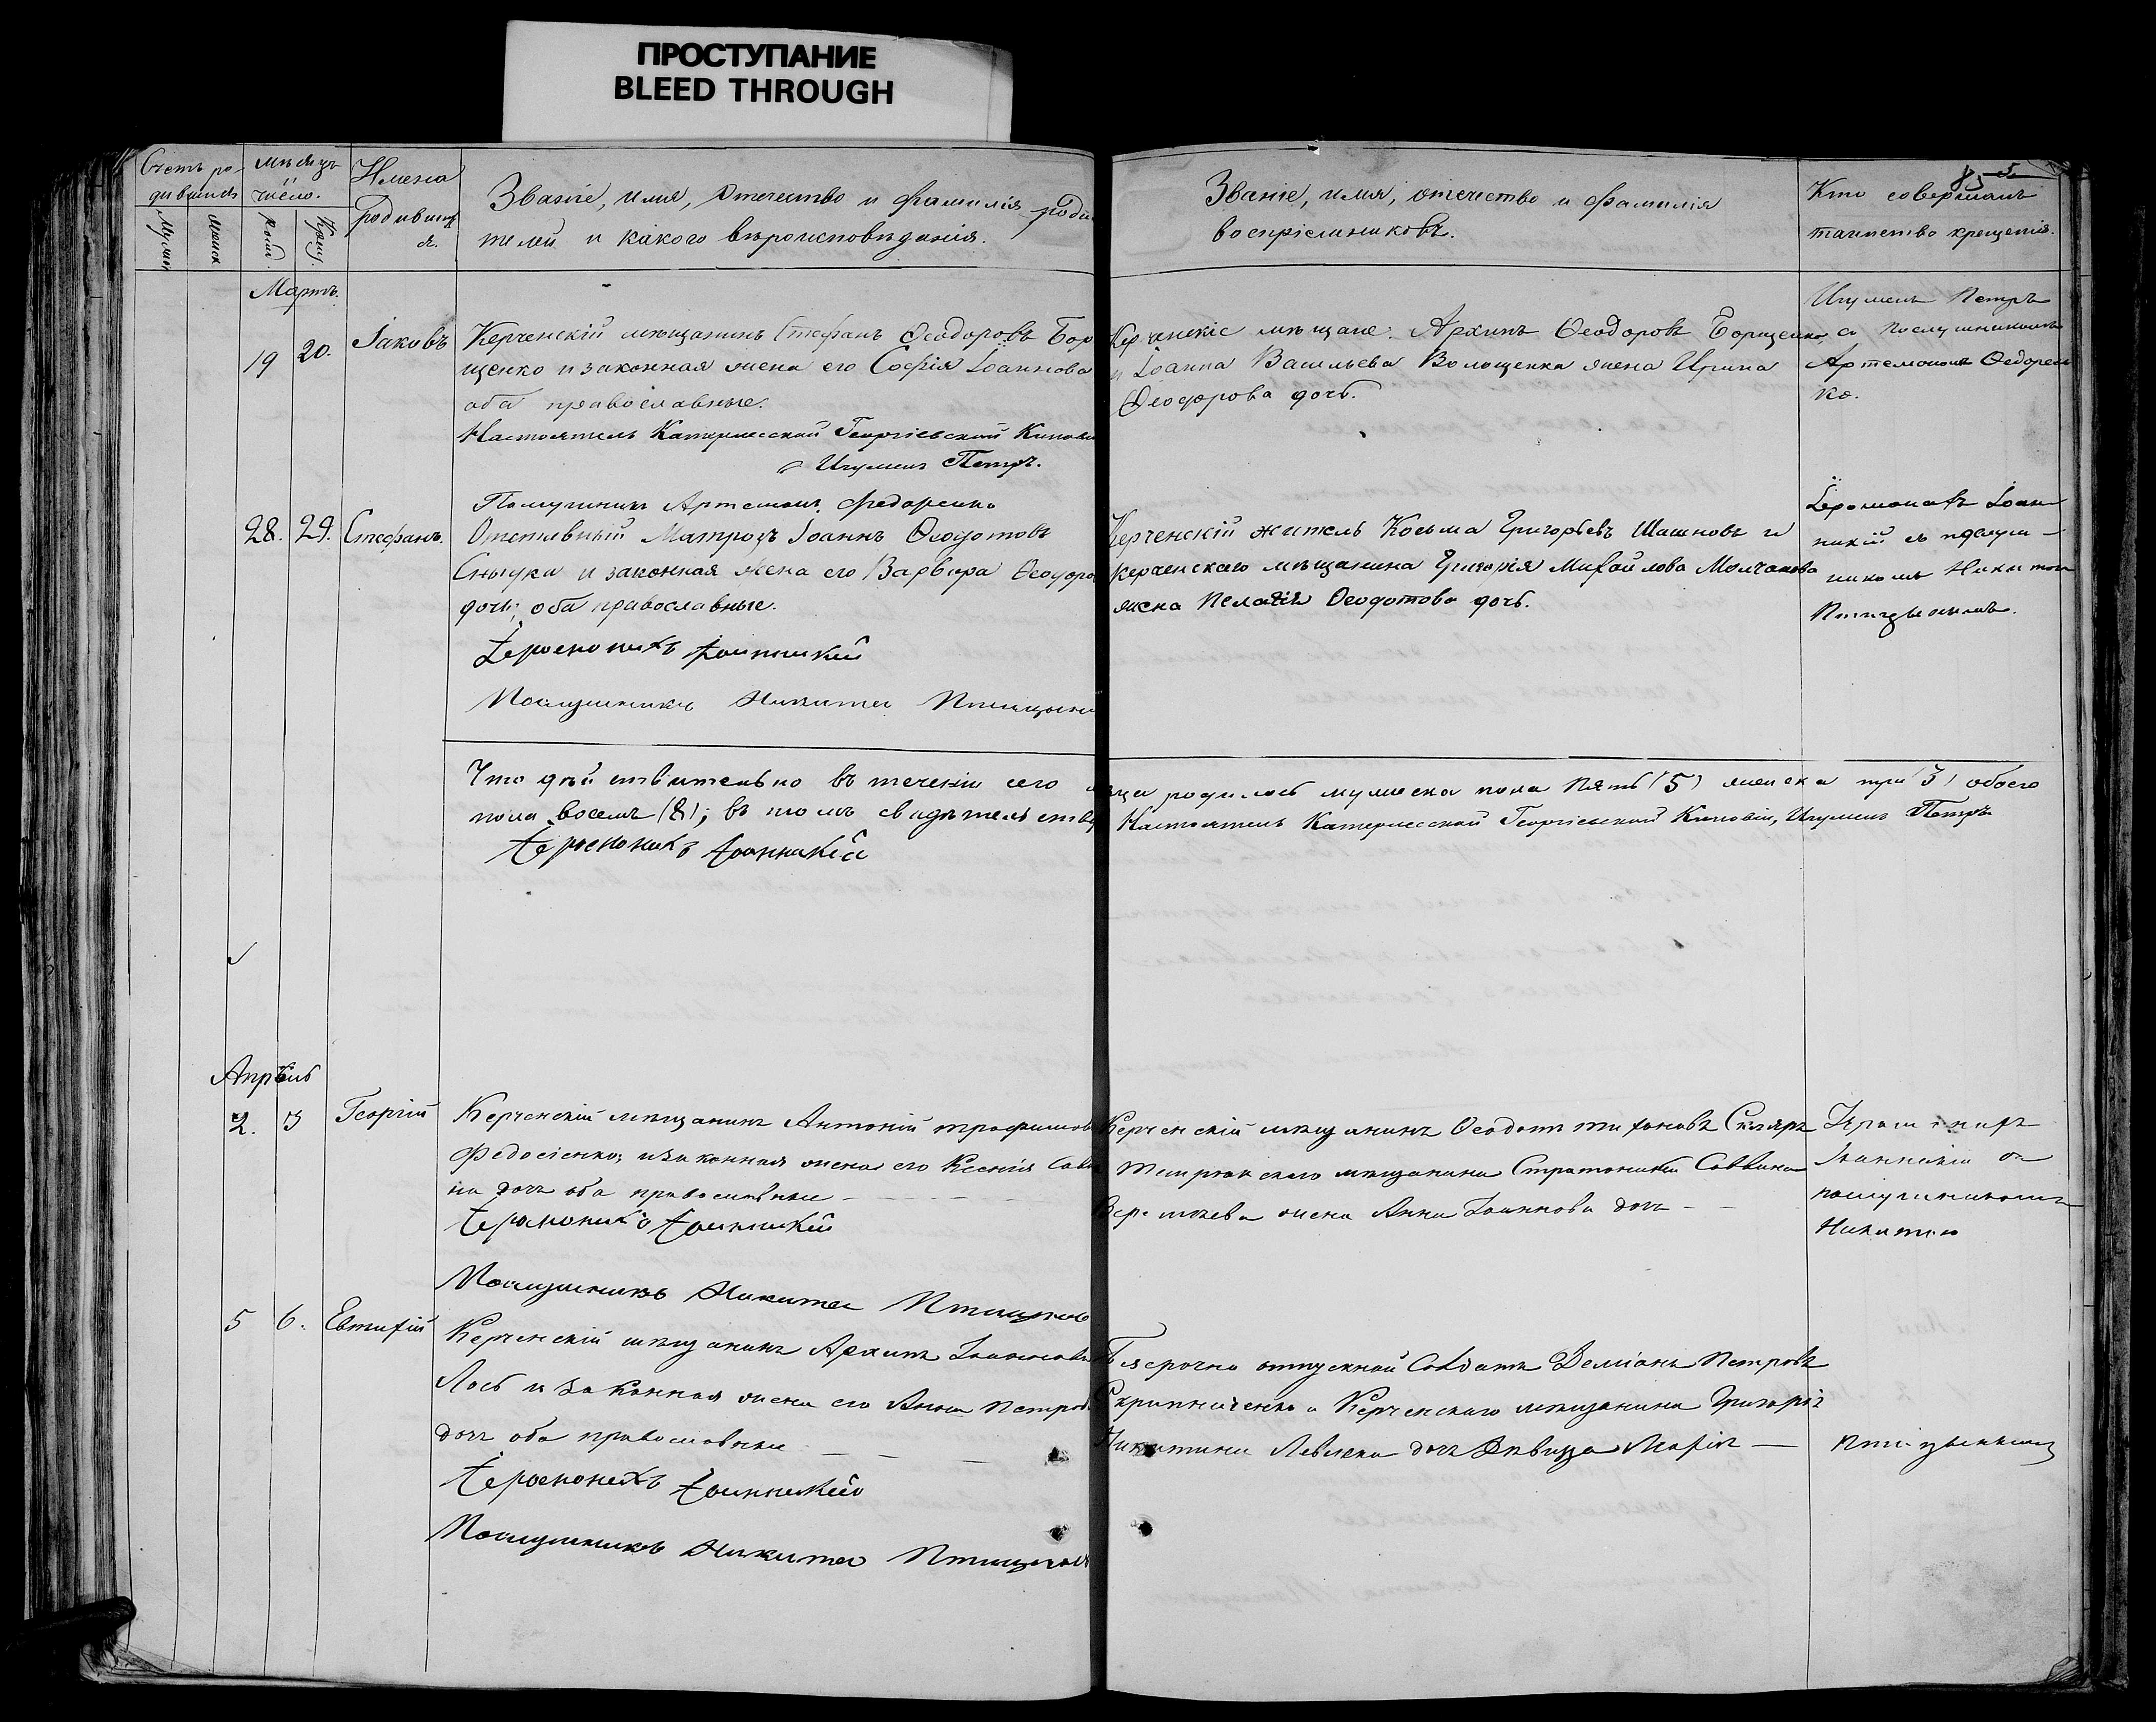 ПРОСТУПАНИЕ
BLEED THROUGH
Счетъ ро-
дившихся
Мѣсяцъ
и число.
Имена
родившихся.
Званіе, имя, отечество и фамилія роди-
телей и какого вѣроисповѣданія.
Званіе, имя, отечество и фамилія
воспріемниковъ.
Кто совершалъ
таинство крещенія.
85
Мартъ.
19 20. Іаковъ
Керченскій мѣщанинъ Стефанъ Ѳеодоровъ Бор
щенко и законная жена его Софія Іоаннова
оба православные.
Настоятель Катерлесской Георгіевской Кинові
Игуменъ Петръ.
Послушникъ Артемонъ Федоренко
Керченскіе мѣщане: Архипъ Ѳеодоровъ Борщенко
и Іоанна Васильева Волощенка жена Ирина
Ѳеодорова дочь.
Игуменъ Петръ
съ послушникомъ
Артемономъ Ѳедорен
ко.
28. 29. Стефанъ.
Отставный Матрозъ Іоаннъ Ѳеодотовъ
и законная жена его Варвара Ѳеодоро
дочь, оба православные.
Іеромонахъ Іоанникій
Послушникъ Никита Птицынъ
Керченскій житель Косьма Григорьевъ Шашновъ и
керченскаго мѣщанина Григорія Михайлова Молчанова
жена Пелагія Ѳеодотова дочь.
Іеромонахъ Іоан
никій съ послуш-
никомъ Никитою
Птицынымъ.
Что дѣйствительно въ теченіи сего мѣсяца родилось мужеска пола пять (5) женска три (3) обоего
пола восемь (8); въ томъ свидѣтельству Настоятель Катерлесской Георгіевской Киновіи, Игуменъ Петръ
Іеромонахъ Іоанникій
Апрѣль
2. 3 Георгій
Керченскій мѣщанинъ Антоній Трофимовъ
Федосіенко, и законная жена его Ксенія Савв
на дочь оба православные
Іеромонахъ Іоанникій
Послушникъ Никита Птицынъ
Керченскій мѣщанинъ Ѳеодотъ Тихоновъ Скляръ
Темрюкскаго мѣщанина Стратоника Саввина
жена Анна Іоаннова дочь
Іеромонахъ
Іоанникій съ
послушникомъ
Никитою
5 6. Евтихій
Керченскій мѣщанинъ Архипъ Іоанновъ
Лось и законная жена его Анна Петрова
дочь оба православные
Іеромонахъ Іоанникій
Послушникъ Никита Птицынъ
Безсрочно отпускной Солдатъ Деміанъ Петровъ
Скрипниченко и Керченскаго мѣщанина Григорія
Никитина Левченка дочь дѣвица Марія
Птицынымъ